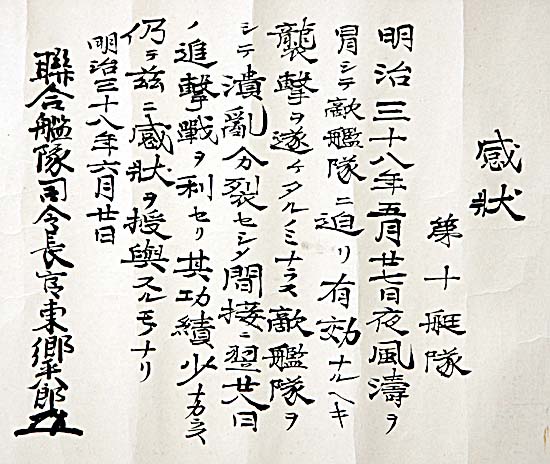 感狀
第十艇隊
明治三十八年五月廿七日夜風濤ヲ
冒シテ敵艦隊ニ迫リ有効ナルヘキ
襲撃ヲ遂ケタルノミナラス敵艦隊ヲ
シテ潰亂分裂セシメ間接ニ翌廿八日
ノ追撃戰ヲ利セリ其功績少カラス
仍テ茲ニ感狀ヲ授與スルモノナリ
明治三十八年六月廿日
聯合艦隊司令長官東郷平八郎